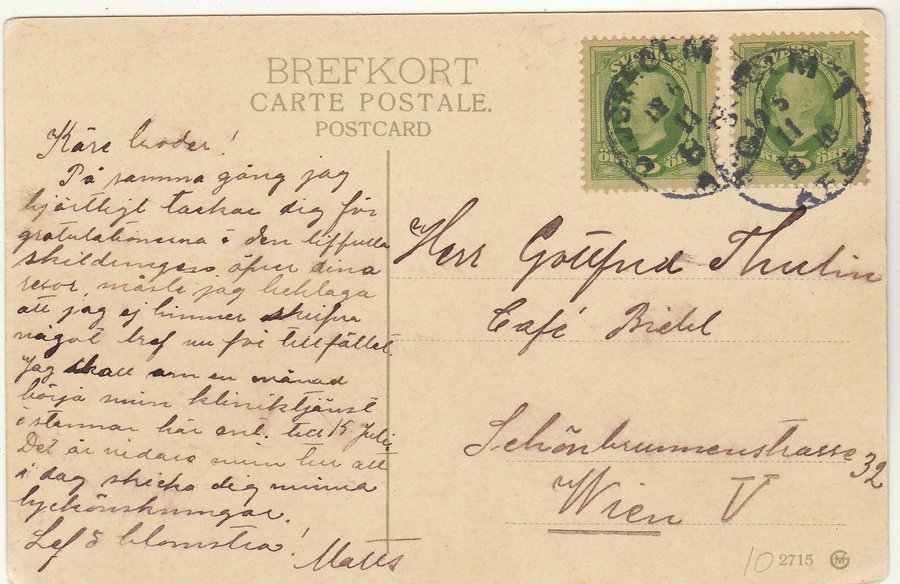 BREFKORT
CARTE POSTALE.
POSTCARD
SVERIGE
SVERIGE
5 ÖRE
Käre broder!
På samma gång jag
hjärtligt tackar dig för
gratulationerna & den liffulla
skildringen öfver dina
resor, måste jag beklaga
att jag ej hinner skrifva
något bref nu för tillfället.
Jag skall om en månad
börja min kliniktjänst
& stannar här ant. till 15 Juli.
Det är vidare min tur att
i dag skicka dig mina
lyckönskningar.
Lef & blomstra!
Matts
Herr Gottfrid Thulin
Café Biebl
Schönbrunnenstrasse
32
Wien V
10
2715